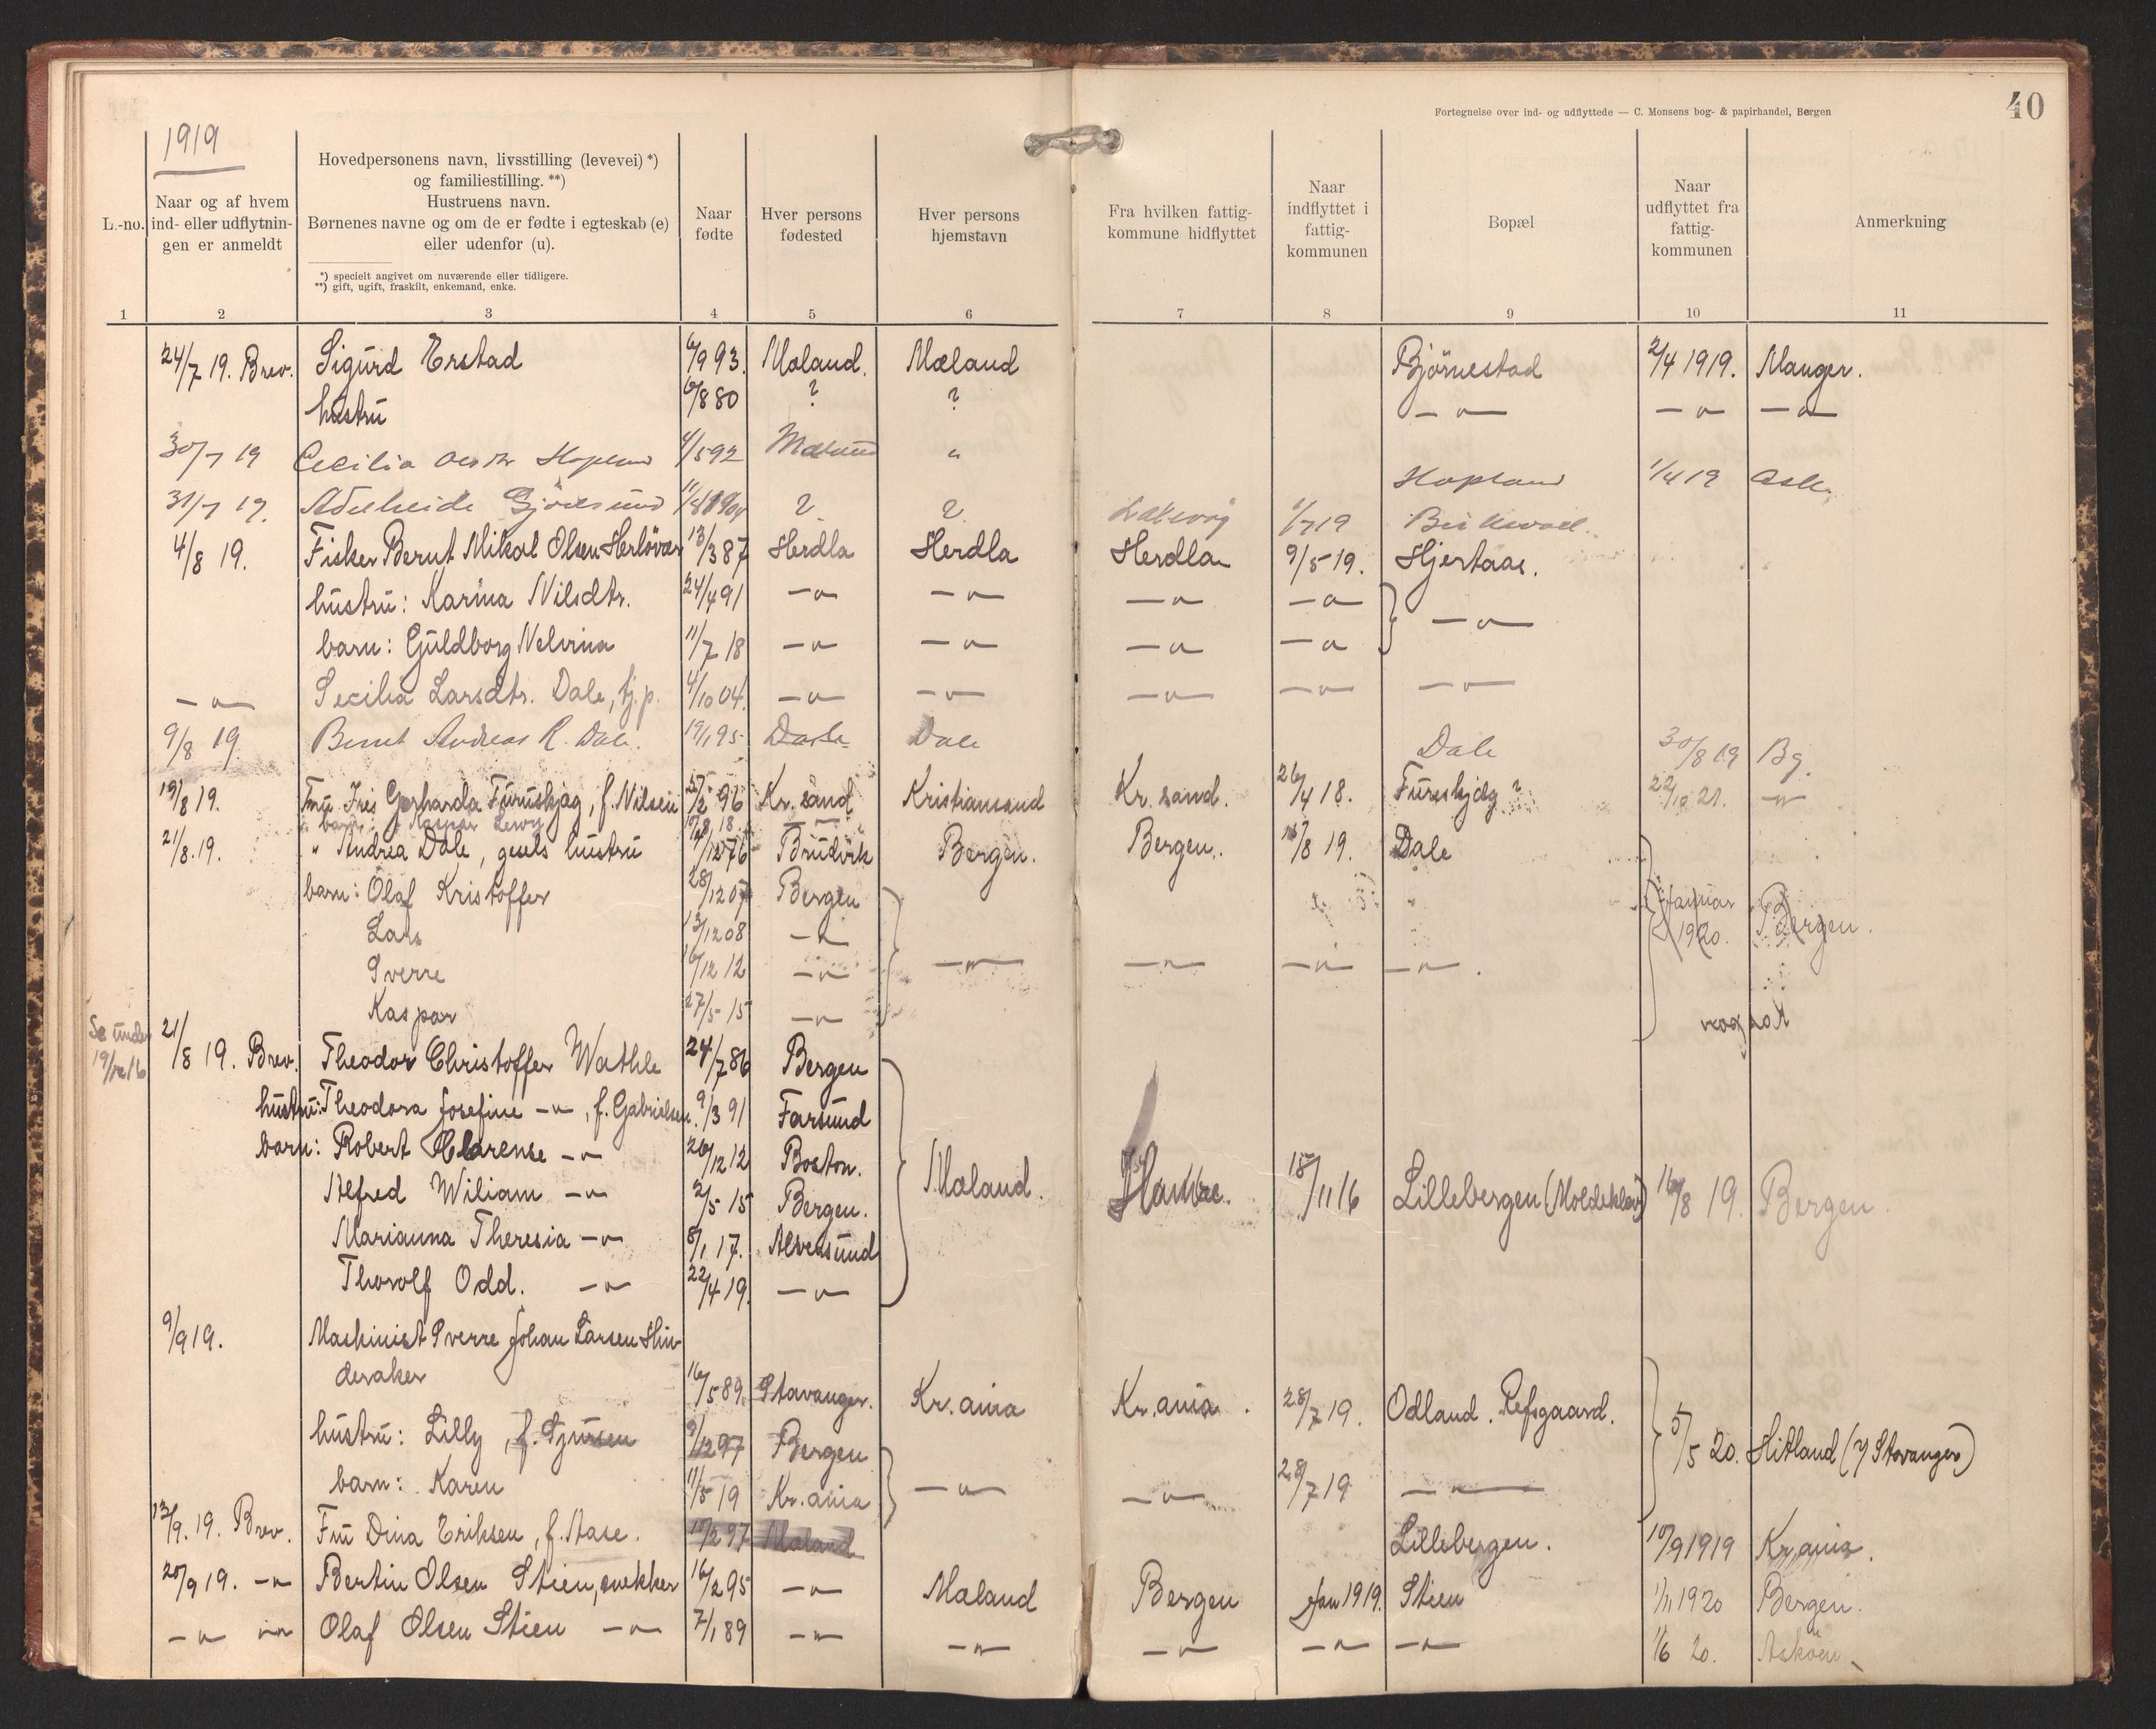 Fortegnelse over ind- og udflyttede — C. Monsens bog- & papirhandel, Bergen
40
1919
L.-no.
Naar og af hvem ind- eller udflytnin- gen er anmeldt
Hovedpersonens navn, livsstilling (levevei) *) og familiestilling. **) Hustruens navn. Børnenes navne og om de er fødte i egteskab (e) eller udenfor (u).
*) specielt angivet om nuværende eller tidligere.
**) gift, ugift, fraskilt, enkemand, enke.
Naar fødte
Hver persons fødested
Hver persons hjemstavn
Fra hvilken fattig- kommune hidflyttet
Naar indflyttet i fattig- kommunen
Bopæl
Naar udflyttet fra fattig- kommunen
Anmerkning
1 2 3 4 5 6 7 8 9 10 11
24/7 19. Brev. Sigurd Erstad 6/9 93. Mæland. Mæland Björnestad 2/4 1919. Manger.
hustru 6/8 80 ? ? — " — — " — — " —
30/7 19 Cecilia Hopland 4/5 92 Mæland " Hopland 1/4 19
31/7 19. ? ? 1/7 19
4/8 19. Fisker Bernt Mikal Olsen Herlövær 13/3 87 Herdla Herdla Herdla 9/5 19. Hjertaas.
hustru: Karina Nilsdtr. 24/4 91 — " — — " — — " — — " — — " —
barn: Guldborg Nelvina 11/7 18 — " — — " — — " — — " —
— " — Secilia Larsdtr. Dale, tj.p. 4/10 04. — " — — " — — " — — " — — " —
9/8 19 Bernt Andreas R. Dale. 19/1 95 Dale Dale Dale 30/8 19 Bg.
19/8 19. Fru Iris Gerharda Furuskjæg, f. Nilsen 25/2 96 Kr. sand Kristiansand Kr. sand. 26/4 18. Fureskjæg ? 22/10 21. — " —
barn: Kaspar 18 — " —
21/8. 19. " Andrea Dale, gsels hustru /12 76 Brudvik Bergen. Bergen. 16/8 19. Dale
barn: Olaf Kristoffer 28/12 07 Bergen Januar 1920. Bergen.
Lars 13/12 08 — " —
Sverre 16/12 12 — " — — " — — " — — " — — " —
Kaspar 27/5 15 — " —
Se under 19/12 16
21/8 19. Brev. Theodor Christoffer Wathle 24/7 86 Bergen
hustru: Theodora Josefine — " —, f. Gabrielsen. 9/3 91 Farsund
barn: Robert Clarense — " — 26/12 12 Boston.
Alfred Wiliam — " — 2/5 15 Bergen. Mæland. Hamre. 15/11 16 Lillebergen (Moldeklev) 16/8 19. Bergen.
Marianna Theresia — " — 8/1 17. Alversund
Thorolf Odd. — " — 22/4 19. — " —
9/9 19. Maskinist Sverre Johan Larsen Hin-
deraker 16/5 89. Stavanger. Kr.ania Kr.ania. 28/7 19. Odland. Refsgaard.
hustru: Lilly, f. Sjursen 9/12 97 Bergen 5/5 20. Hitland (y Stavanger)
barn: Karen 11/5 19 Kr.ania — " — — " — 28/7 19 — " —
13/9. 19. Brev. Fru Dina Eriksen, f. Aase. 10/2 97 Mæland Lillebergen. 10/9 1919 Kr.ania.
20/9 19. — " — Bertin Olsen Stien, snekker 16/2 95 — " — Mæland Bergen Jan 1919. Stien 1/11 1920 Bergen.
— " — — " — Olaf Olsen Stien — " — 7/1 89 — " — — " — — " — — " — — " — 1/6 20. Asköen